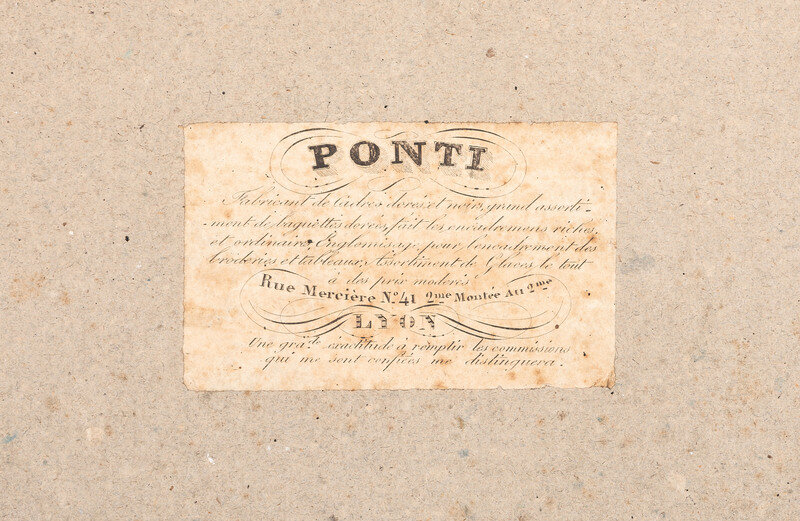 PONTI
Fabricant de Cadres dorés et noirs, grand assorti-
ment de baguettes dorées, fait les encadremens riches,
et ordinaire, Englomisage pour l'encadrement des
broderies et tableaux, Assortiment de Glaces le tout
à des prix modérés
Rue Mercière No. 41 2me Montée Au 2me
LYON
Une grãde exactitude à remplir les commissions
qui me sont confiées me distinguera.